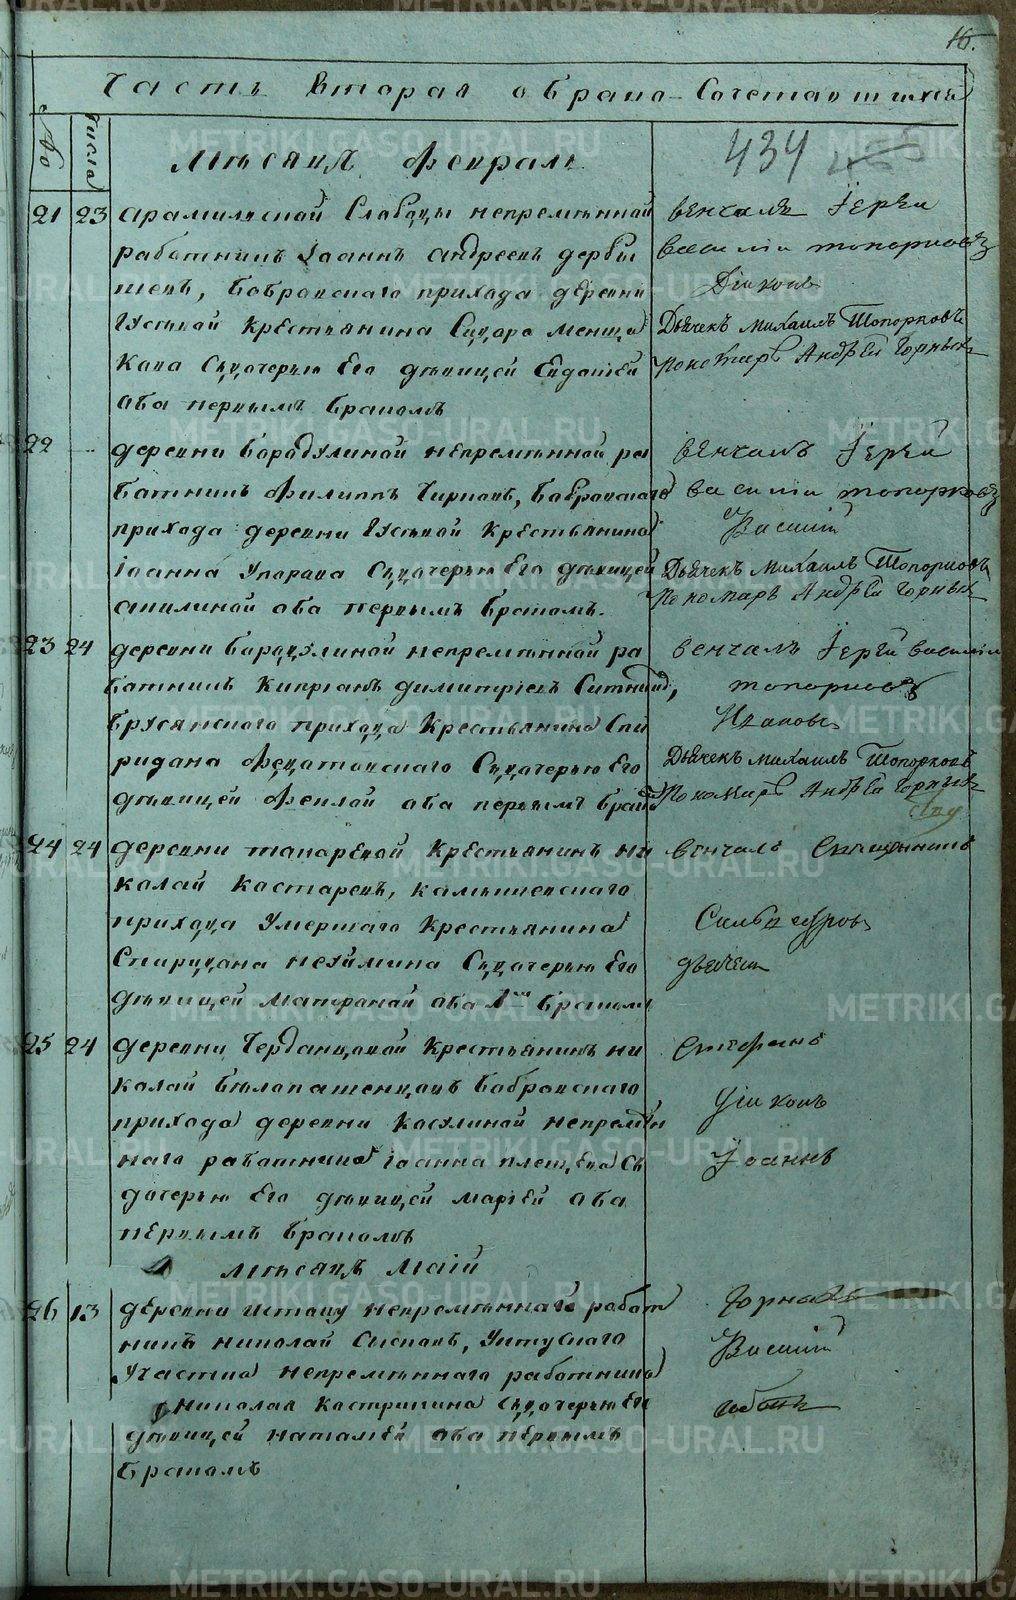 16.
Часть вторая о брако-сочетавшихся
№
числа
Месяцъ Февраль
434
21 23 арамильской Слабоды непременной
работникъ Iоаннъ андреевъ дербы
шевъ, бобровскаго прихода деревни
крестьянина Сидора менща
кова Съдочерью Его девицей
оба первымъ бракомъ
венчалъ Iерей
василiй топорковъ
Дiаконъ
Дьячекъ Михаилъ Топорковъ
Пономарь Андрей Горныхъ
22 деревни бородулиной непременной ра
ботникъ Филиппъ Чирковъ, бобровскаго
прихода деревни крестьянина
Iоанна Упорова Съдочерью Его девицей
акилиной оба первымъ бракомъ.
венчалъ Iерей
василiй топорковъ
Дьячекъ Михаилъ Топорковъ
Пономарь Андрей Горныхъ
23 24 деревни бородулиной непременной ра
ботникъ Кипрiанъ димитрiевъ Ситниковъ,
брусянскаго прихода Крестьянина Спи
ридона Съдочерью Его
девицей феклой оба первымъ брако
венчалъ Iерей василiй
топорковъ
Дьячекъ Михаилъ Топорковъ
Пономарь Андрей Горныхъ
24 24 деревни токаревой крестьянинъ ни
колай костаревъ, камышевскаго
прихода умершаго крестьянина
Спиридона неуймина Съдочерью Его
девицей матроной оба 1мъ бракомъ
венчалъ Священникъ
дьячекъ
25 24 деревни Черданцовой крестьянинъ ни
колай белопашенцовъ бобровскаго
прихода деревни косулиной непремен
наго работника Iоанна плещева Съ
дочерью Его девицей марiей оба
первымъ бракомъ
Стефанъ
Дiаконъ
Iоаннъ
Месяцъ Маiй
26 13 деревни истоку непременнаго работ
никъ николай Сысковъ, Уктусскаго
участка непременнаго работника
николая кострикина Съдочерью Его
девицей наталiей оба первымъ
бракомъ